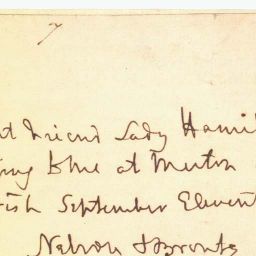 nt Friend Lady Hami
ing Blue at Merton
September Eleven
Nelson & Bronte